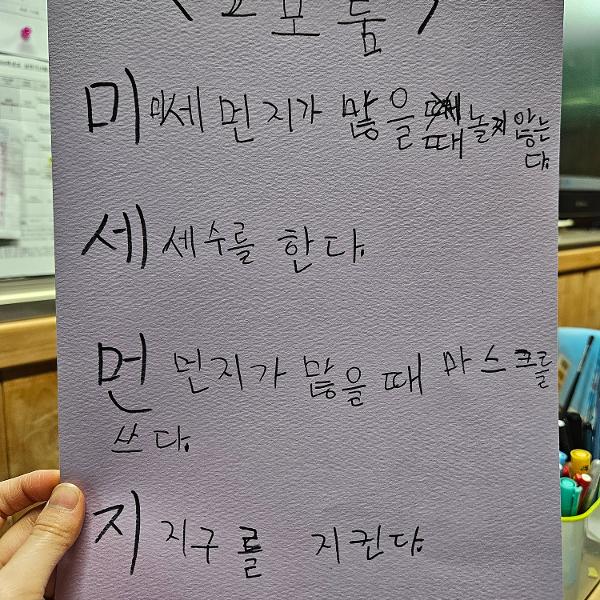 모둠
미 미세 먼지가 많을 때 놀지 않는
다.
세 세수를 한다.
먼 먼지가 많을 때 마스크를
쓰다.
지 지구를 지킨다.